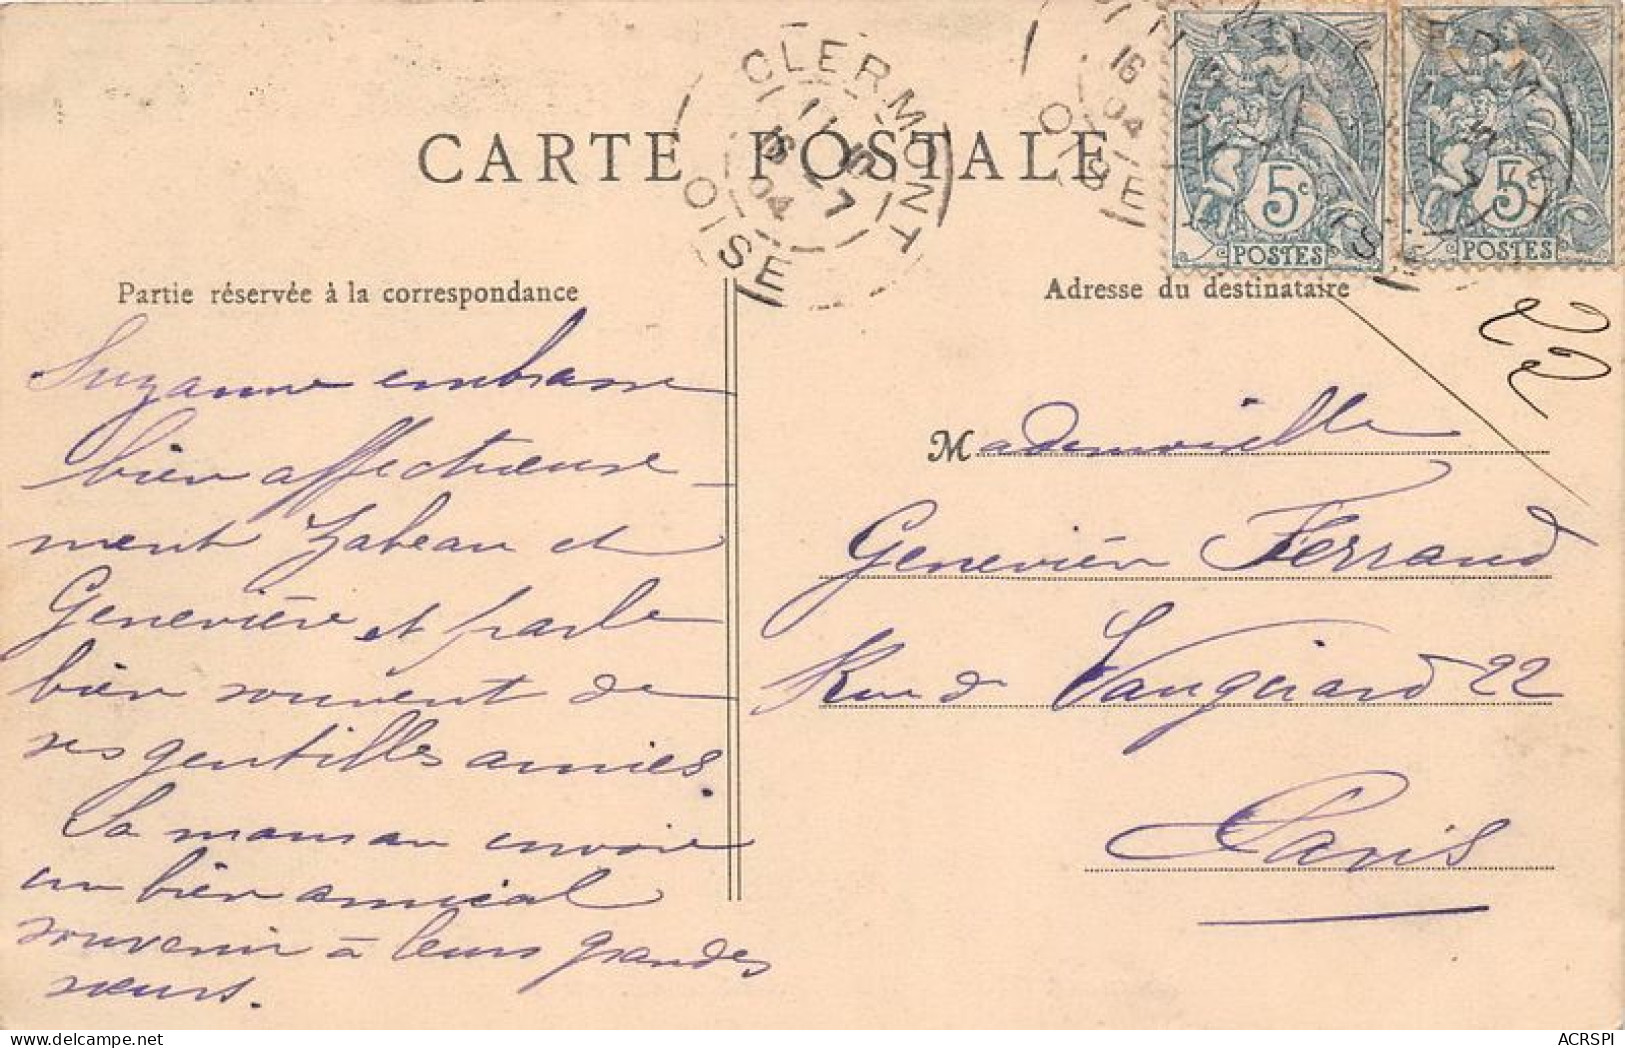 CARTE POSTALE
CLERMONT
OISE
16
04
OISE
16
04
5c
POSTES
5c
POSTES
Partie réservée à la correspondance
Adresse du destinataire
22
Suzanne embrasse
bien affectueuse
ment Zabeau et
Geneviève et parle
bien souvent de
ses gentilles amies.
Sa maman envoie
un bien amical
souvenir à leurs grandes
sœurs.
Mademoiselle
Geneviève Ferrand
Rue de Vaugirard 22
Paris
ACRSPI